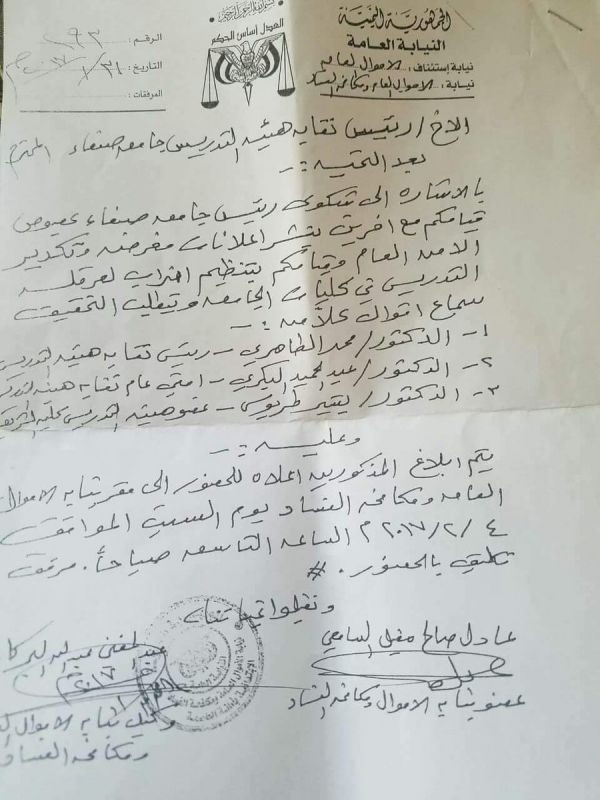 بسم الله الرحمن الرحيم
الجمهورية اليمنية
النيابة العامة
نيابة إستئناف: الاموال العامه
نيابة: الاموال العامه ومكافحة الفساد
العدل أساس الحكم
الرقم: ٢٩٣
التاريخ: ٣١ / ١ / ٢٠١٧م
المرفقات:
الاخ / رئيس نقابه هيئه التدريس جامعه صنعاء المحترم
بعد التحيه :ـ
بالاشاره الى شكوى رئيس جامعه صنعاء بخصوص
قيامكم مع اخرين بنشر اعلانات مغرضه وتكدير
الامن العام وقيامكم بتنظيم اضراب لعرقله
التدريس في كليات الجامعه وتطلب التحقيق
سماع اقوال كلاً من :ـ
١- الدكتور / محمد الظاهري - رئيس نقابه هيئه التدريس
٢- الدكتور / عبدالحميد البكري - امين عام نقابه هيئه
٣- الدكتور / - عضو هيئه التدريس بكليه
وعليه :ـ
يتم ابلاغ المذكورين اعلاه للحضور الى مقر نيابه الاموال
العامه ومكافحه الفساد يوم السبت الموافق
٤ / ٢ / ٢٠١٧م الساعه التاسعه صباحاً. مرفق
تكليف بالحضور. #
وتقبلوا تحياتنا
عادل صالح مقبل السامعي
عضو نيابه الاموال ومكافحه الفساد
عبدالله
٢٠١٧
وكيل نيابه الاموال
ومكافحه الفساد